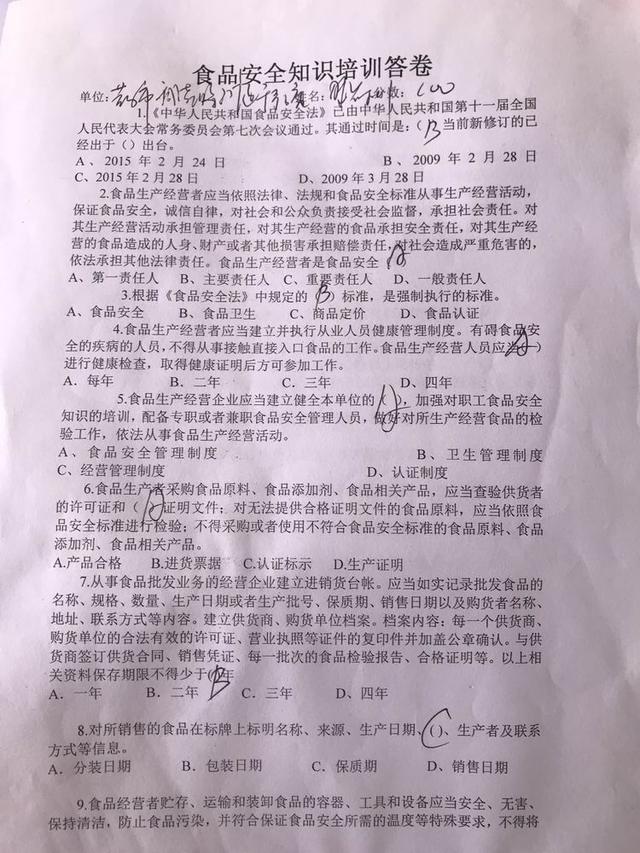 食品安全知识培训答卷
单位: 姓名: 分数: 100
1.《中华人民共和国食品安全法》已由中华人民共和国第十一届全国
人民代表大会常务委员会第七次会议通过。其通过时间是:( B 当前新修订的已
经出于()出台。
A、2015 年 2 月 24 日 B、2009 年 2 月 28 日
C、2015 年 2 月 28 日 D、2009 年 3 月 28 日
2.食品生产经营者应当依照法律、法规和食品安全标准从事生产经营活动,
保证食品安全,诚信自律,对社会和公众负责接受社会监督,承担社会责任。对
其生产经营活动承担管理责任,对其生产经营的食品承担安全责任,对其生产经
营的食品造成的人身、财产或者其他损害承担赔偿责任,对社会造成严重危害的,
依法承担其他法律责任。食品生产经营者是食品安全( A
A、第一责任人 B、主要责任人 C、重要责任人 D、一般责任人
3.根据《食品安全法》中规定的( B )标准,是强制执行的标准。
A、食品安全 B、食品卫生 C、商品定价 D、食品认证
4.食品生产经营者应当建立并执行从业人员健康管理制度。有碍食品安
全的疾病的人员,不得从事接触直接入口食品的工作。食品生产经营人员应当( A )
进行健康检查,取得健康证明后方可参加工作。
A. 每年 B、二年 C、三年 D、四年
5.食品生产经营企业应当建立健全本单位的( A ),加强对职工食品安全
知识的培训,配备专职或者兼职食品安全管理人员,做好对所生产经营食品的检
验工作,依法从事食品生产经营活动。
A、食品安全管理制度 B、卫生管理制度
C、经营管理制度 D、认证制度
6.食品生产者采购食品原料、食品添加剂、食品相关产品,应当查验供货者
的许可证和( A 证明文件;对无法提供合格证明文件的食品原料,应当依照食
品安全标准进行检验;不得采购或者使用不符合食品安全标准的食品原料、食品
添加剂、食品相关产品。
A.产品合格 B.进货票据 C.认证标示 D.生产证明
7.从事食品批发业务的经营企业建立进销货台帐。应当如实记录批发食品的
名称、规格、数量、生产日期或者生产批号、保质期、销售日期以及购货者名称、
地址、联系方式等内容。建立供货商、购货单位档案。档案内容:每一个供货商、
购货单位的合法有效的许可证、营业执照等证件的复印件并加盖公章确认。与供
货商签订供货合同、销售凭证、每一批次的食品检验报告、合格证明等。以上相
关资料保存期限不得少于( B 年
A. 一年 B. 二年 C、三年 D、四年
8.对所销售的食品在标牌上标明名称、来源、生产日期、( C )、生产者及联系
方式等信息。
A. 分装日期 B、包装日期 C、保质期 D、销售日期
9.食品经营者贮存、运输和装卸食品的容器、工具和设备应当安全、无害、
保持清洁,防止食品污染,并符合保证食品安全所需的温度等特殊要求,不得将